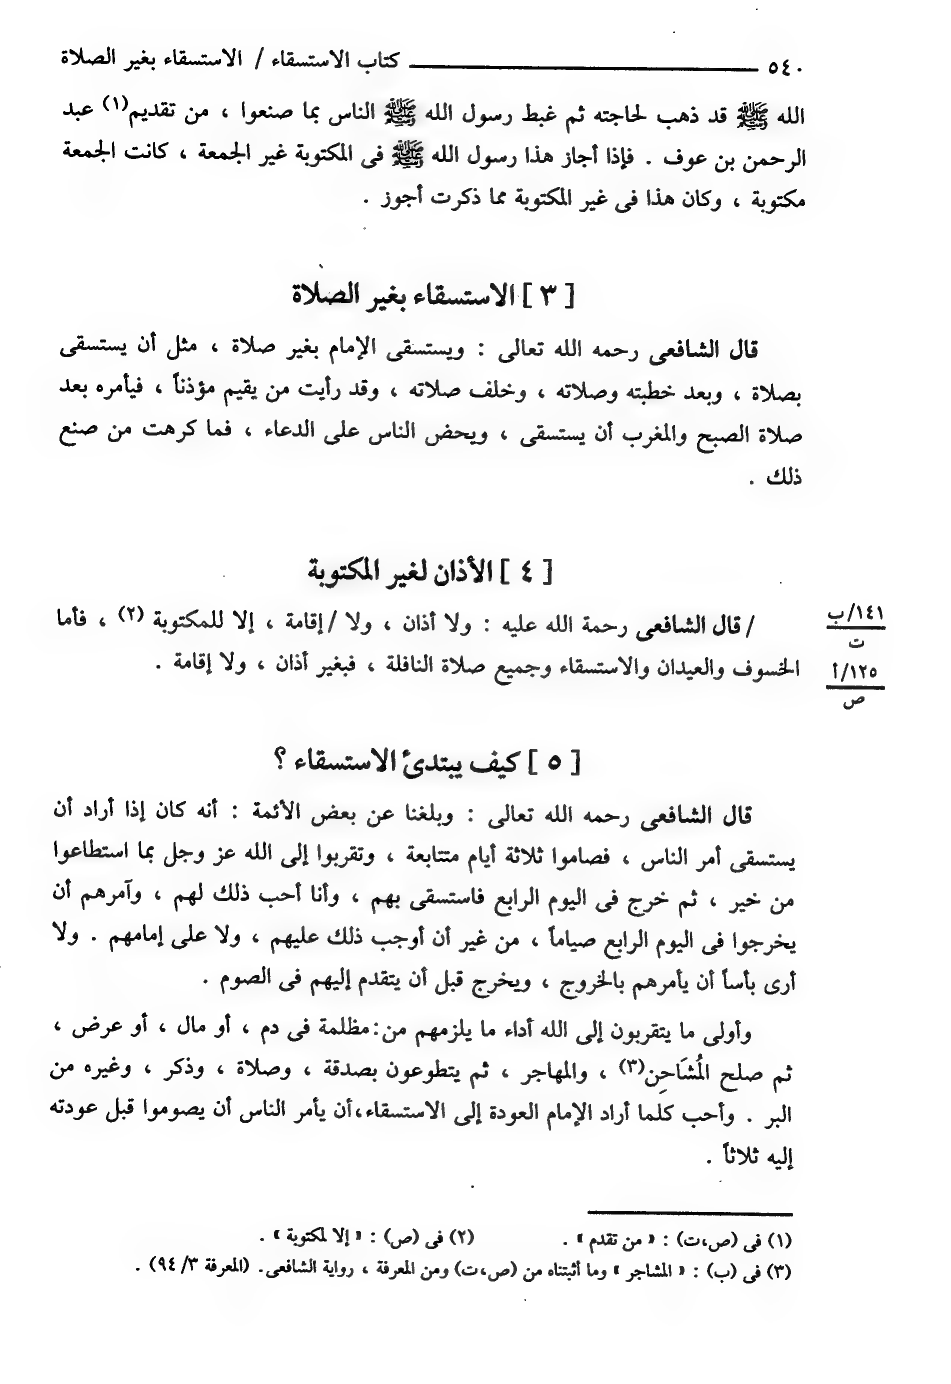 ٥٤٠ ــــــــــ كتاب الاستسقاء / الاستسقاء بغير الصلاة
الله ﷺ قد ذهب لحاجته ثم غبط رسول الله ﷺ الناس بما صنعوا ، من تقديم(١) عبد
الرحمن بن عوف . فإذا أجاز هذا رسول الله ﷺ فى المكتوبة غير الجمعة ، كانت الجمعة
مكتوبة ، وكان هذا فى غير المكتوبة مما ذكرت أجوز .
[ ٣ ] الاستسقاء بغير الصلاة
قال الشافعى رحمه الله تعالى : ويستسقى الإمام بغير صلاة ، مثل أن يستسقى
بصلاة ، وبعد خطبته وصلاته ، وخلف صلاته ، وقد رأيت من يقيم مؤذناً ، فيأمره بعد
صلاة الصبح والمغرب أن يستسقى ، ويحض الناس على الدعاء ، فما كرهت من صنع
ذلك .
[ ٤ ] الأذان لغير المكتوبة
/ قال الشافعى رحمة الله عليه : ولا أذان ، ولا / إقامة ، إلا للمكتوبة (٢) ، فأما
الخسوف والعيدان والاستسقاء وجميع صلاة النافلة ، فبغير أذان ، ولا إقامة .
١٤١/ب
ت
١٢٥/أ
ص
[ ٥ ] كيف يبتدئ الاستسقاء ؟
قال الشافعى رحمه الله تعالى : وبلغنا عن بعض الأئمة : أنه كان إذا أراد أن
يستسقى أمر الناس ، فصاموا ثلاثة أيام متتابعة ، وتقربوا إلى الله عز وجل بما استطاعوا
من خير ، ثم خرج فى اليوم الرابع فاستسقى بهم ، وأنا أحب ذلك لهم ، وآمرهم أن
يخرجوا فى اليوم الرابع صياماً ، من غير أن أوجب ذلك عليهم ، ولا على إمامهم . ولا
أرى بأساً أن يأمرهم بالخروج ، ويخرج قبل أن يتقدم إليهم فى الصوم .
وأولى ما يتقربون إلى الله أداء ما يلزمهم من : مظلمة فى دم ، أو مال ، أو عرض ،
ثم صلح المُشَاحِن(٣) ، والمهاجر ، ثم يتطوعون بصدقة ، وصلاة ، وذكر ، وغيره من
البر . وأحب كلما أراد الإمام العودة إلى الاستسقاء،أن يأمر الناس أن يصوموا قبل عودته
إليه ثلاثاً .
(١) فى (ص،ت) : « من تقدم » . (٢) فى (ص) : « إلا لمكتوبة » .
(٣) فى (ب) : « المشاجر » وما أثبتناه من (ص،ت) ومن المعرفة ، رواية الشافعى. (المعرفة ٣/ ٩٤) .